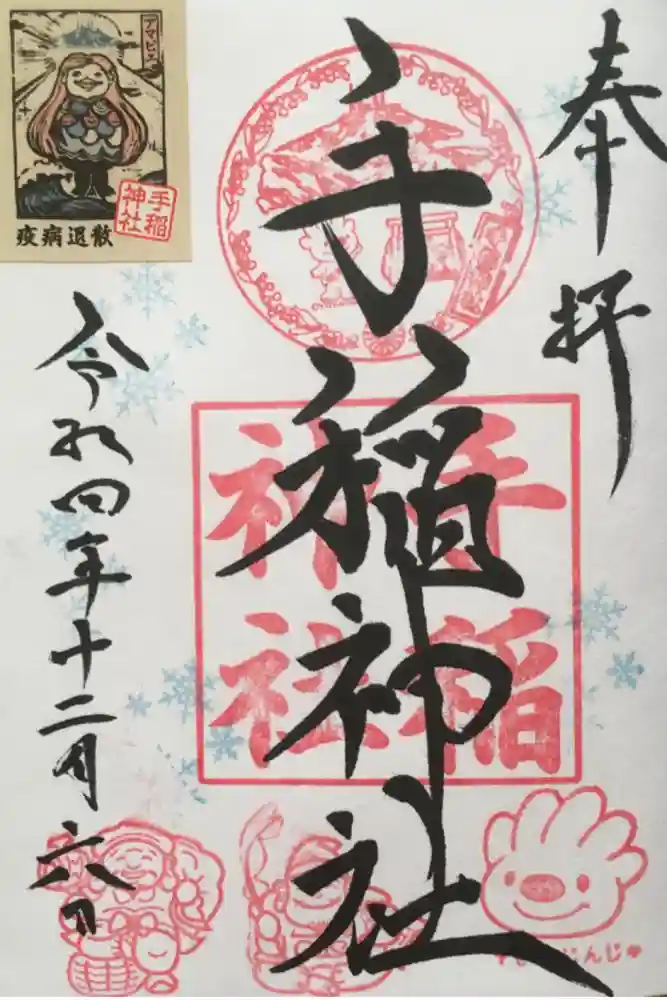 奉拝
手稲神社
手稲神社
令和四年十二月六日
アマビエ
手稲神社
疫病退散
じんじ